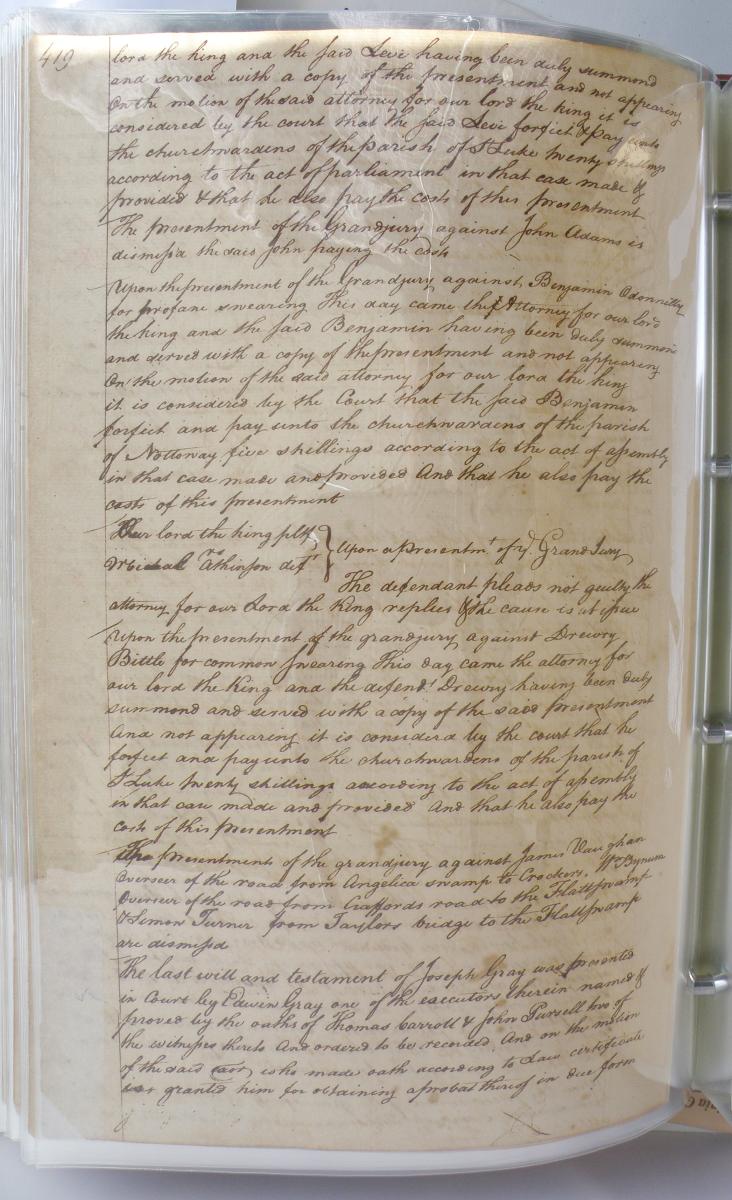 419
lord the king and the said Levi having been duly summond
and served with a copy of the presentment and not appearing
On the motion of the said attorney for our lord the king it is
considered by the court that the said Levi forfiet & pay unto
the churchwardens of the parish of St Luke twenty shillings
according to the act of parliament in that case made &
provided & that he also pay the costs of this presentment
The presentment of the Grandjury against John Adams is
dismissd the said John paying the costs
Upon the presentment of the Grandjury against Benjamin Odonnelley
for profane swearing This day came the Attorney for our lord
the king and the said Benjamin having been duly summond
and served with a copy of the presentment and not appearing
On the motion of the said attorney for our lord the king
it is considered by the Court that the said Benjamin
forfiet and pay unto the churchwardens of the parish
of Nottoway five shillings according to the act of assembly
in that case made and provided And that he also pay the
costs of this presentment
Our lord the king plt
vs
Michal Atkinson deft
Upon a presentmt of ye Grand Jury
The defendant pleads not guilty the
attorney for our Lord the King replies & the cause is at issue
Upon the presentment of the grandjury against Drewry
Bittle for common swearing This day came the attorney for
our lord the King and the defendt Drewry having been duly
summond and served with a copy of the said presentment
And not appearing it is considerd by the court that he
forfiet and pay unto the churchwardens of the parish of
St Luke twenty shillings according to the act of assembly
in that case made and provided And that he also pay the
costs of this presentment
The presentments of the grandjury against James Vaughan
Overseer of the road from Angelica swamp to Crockers, Wm Bynum
Overseer of the road from Craffords road to the Flattswamp
& Simon Turner from Taylors bridge to the Flattswamp
are dismissd
The last will and testament of Joseph Gray was presented
in Court by Edwin Gray one of the executors therein named &
proved by the oaths of Thomas Carroll & John Pursell two of
the witnesses thereto And ordered to be recorded And on the motion
of the said exor who made oath according to Law certificate
is granted him for obtaining a probat thereof in due form